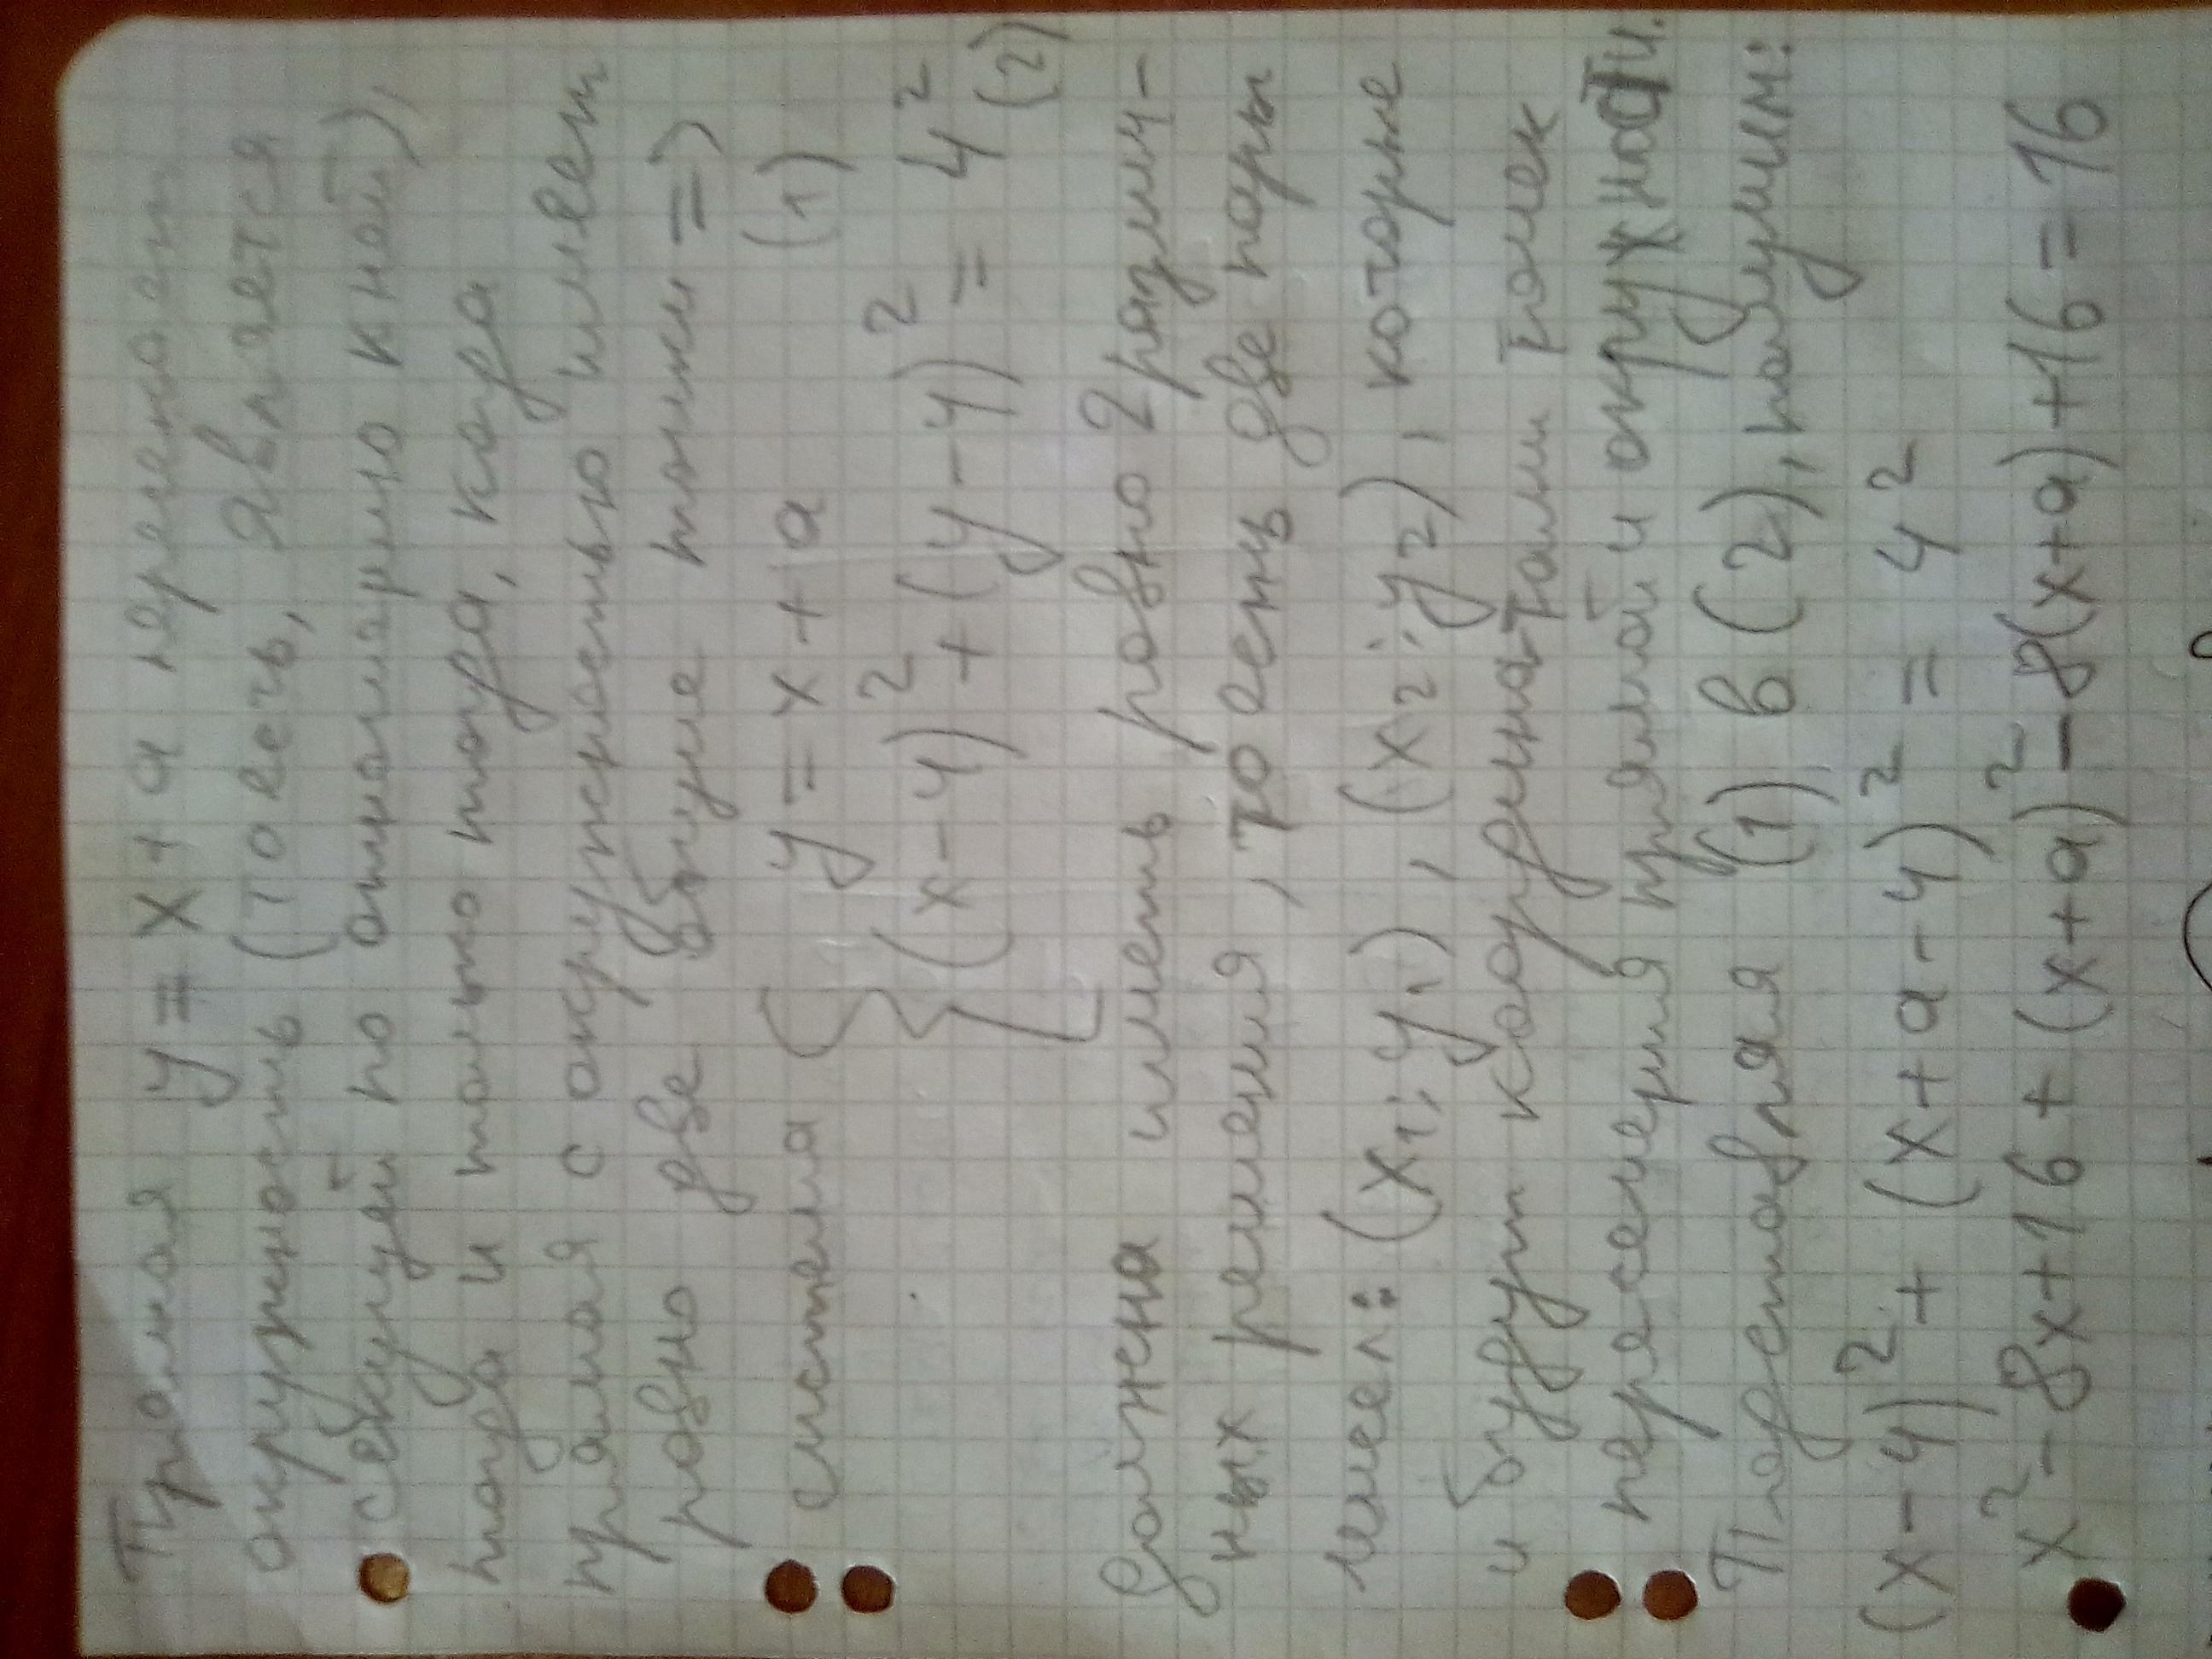 Прямая y = x + a пересекает
окружность (то есть, является
секущей по отношению к ней),
тогда и только тогда, когда
прямая с окружностью имеет
ровно две общие точки =>
система { y = x + a (1)
(x-4)² + (y-4)² = 4² (2)
должна иметь ровно 2 различ-
ных решения, то есть две пары
чисел: (x₁; y₁), (x₂; y₂), которые
и будут координатами точек
пересечения прямой и окружности.
Подставляя (1) в (2), получим:
(x-4)² + (x+a-4)² = 4²
x²-8x+16+(x+a)²-8(x+a)+16=16